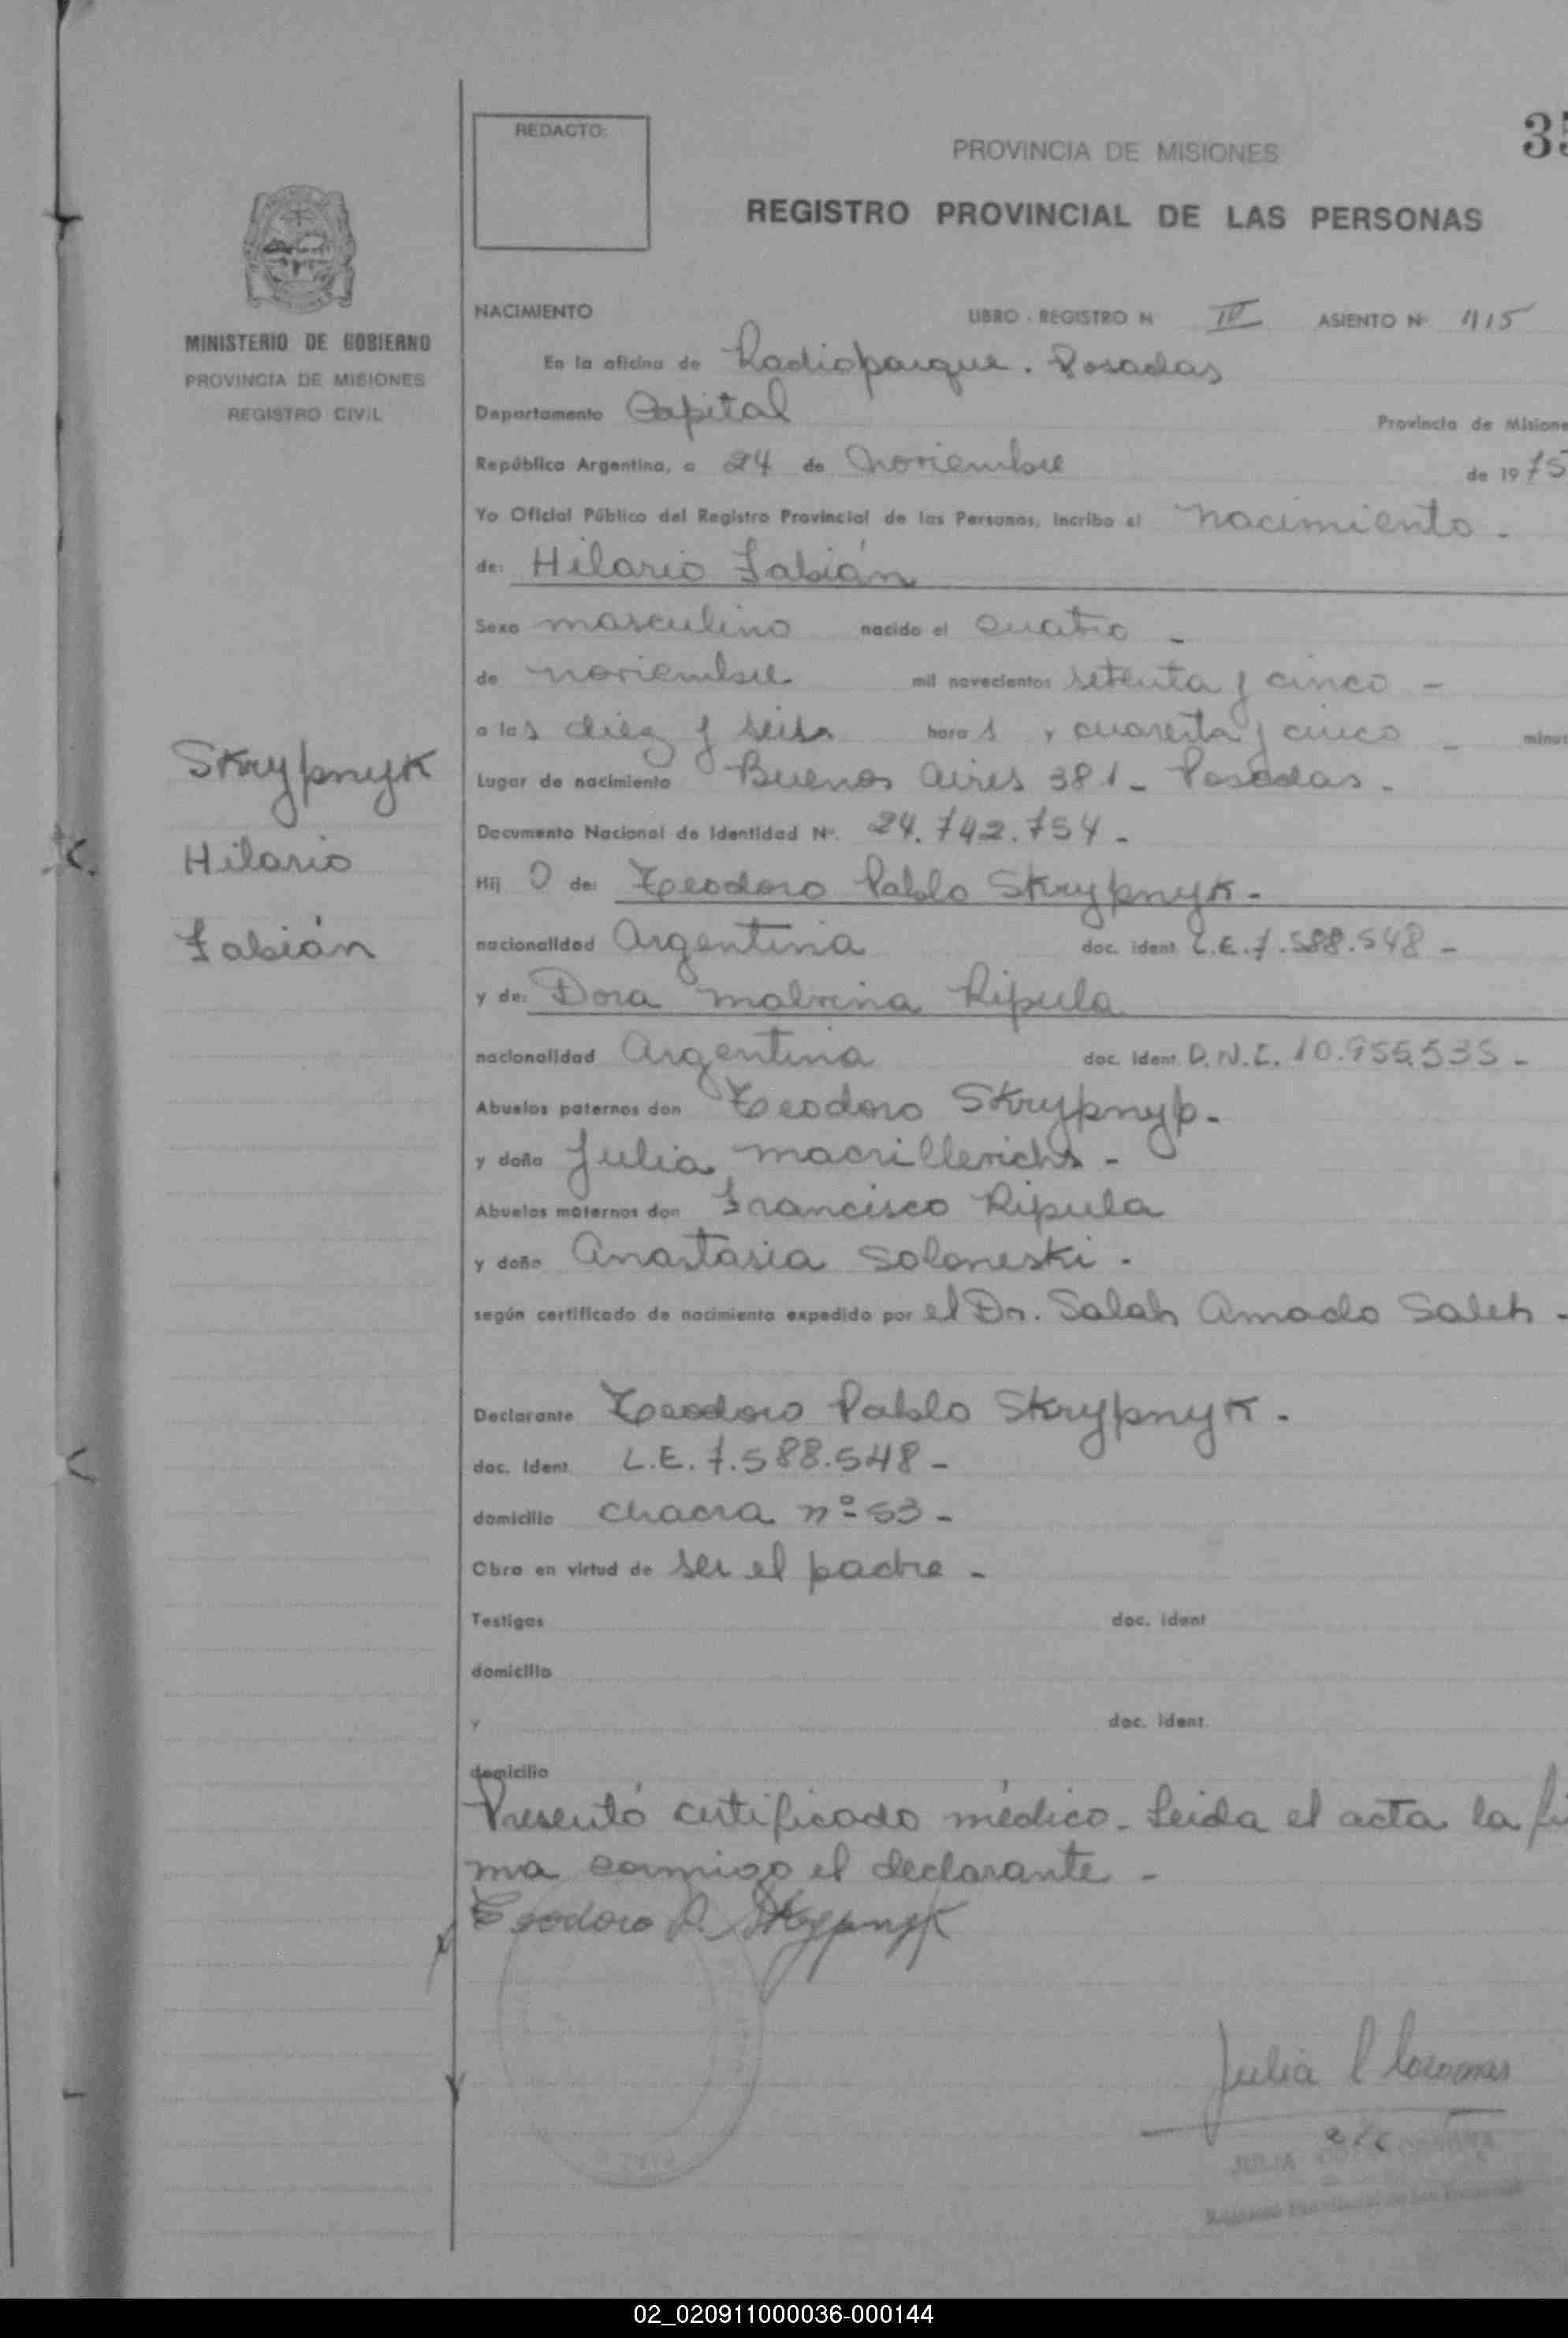 REDACTO:
PROVINCIA DE MISIONES
REGISTRO PROVINCIAL DE LAS PERSONAS
MINISTERIO DE GOBIERNO
PROVINCIA DE MISIONES
REGISTRO CIVIL
NACIMIENTO LIBRO - REGISTRO N IV ASIENTO Nº 415
En la oficina de Radioparque. Posadas
Departamento Capital Provincia de Misione
República Argentina, a 24 de Noviembre de 1975
Yo Oficial Público del Registro Provincial de las Personas, incribo el nacimiento.
de: Hilario Fabián
Sexo masculino nacido el cuatro -
de noviembre mil novecientos setenta y cinco -
a las diez y seis horas y cuarenta y cinco - minut
Lugar de nacimiento Buenos Aires 381 - Posadas.
Documento Nacional de Identidad Nº. 24.742.754 -
Hij o de: Teodoro Pablo Skrypnyk -
nacionalidad Argentina doc. ident. L.E. 7.588.548 -
y de: Dora Malvina Ripula
nacionalidad Argentina doc. ident. D.N.I. 10.955.535 -
Abuelos paternos don Teodoro Skrypnyp -
y doña Julia
Abuelos maternos don Francisco Ripula
y doña Anastasia Soloneski -
según certificado de nacimiento expedido por el Dr. Salah Amado Saleh -
Skrypnyk
Hilario
Fabián
Declarante Teodoro Pablo Skrypnyk -
doc. Ident. L.E. 7.588.548 -
domicilio chacra nº 53 -
Obra en virtud de ser el padre -
Testigos doc. ident
domicilio
y doc. Ident.
domicilio
Presentó certificado médico - Leida el acta la fi
ma conmigo el declarante -
Teodoro P. Skrypnyk
Julia
JULIA
02_020911000036-000144